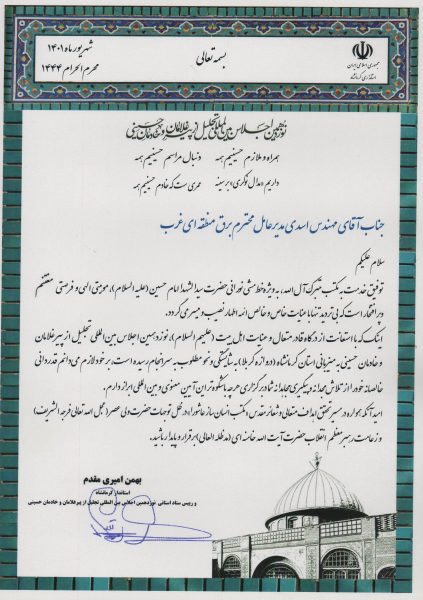 بسمه تعالی
جمهوری اسلامی ایران
استانداری کرمانشاه
شهریور ماه ۱۴۰۱
محرم الحرام ۱۴۴۴
نوزدهمین اجلاس بین المللی تجلیل از پیرغلامان و خادمان حسینی
همراه و ملازم حسینیم همه
دنبال مراسم حسینیم همه
داریم مدال نوکری بر سینه
عمری ست که خادم حسینیم همه
جناب آقای مهندس اسدی مدیرعامل محترم برق منطقه ای غرب
سلام علیکم
توفیق خدمت به مکتب متبرک آل الله، به ویژه خط مشی نورانی حضرت سید الشهدا امام حسین (علیه السلام)، موهبتی الهی و فرصتی مغتنم
و پر افتخار است که بی تردید تنها با عنایات خاص و خالص ائمه اطهار نصیب و میسر می گردد.
اینک که با استعانت از درگاه قادر متعال و عنایات اهل بیت (علیهم السلام)، نوزدهمین اجلاس بین المللی تجلیل از پیرغلامان و
خادمان حسینی به میزبانی استان کرمانشاه (دروازه کربلا)، به شایستگی و نحو مطلوب به سرانجام رسیده است، بر خود لازم می دانم قدردانی
خالصانه خود را از تلاش مجدانه و پیگیری مجاهدانه شما در برگزاری هرچه باشکوه تر این آیین معنوی و بین المللی ابراز دارم.
امید آنکه همواره در مسیر تحقق اهداف متعالی و شعائر مقدس و مکتب انسان ساز عاشورا، در ظل توجهات حضرت ولی عصر (عجل الله تعالی فرجه الشریف)
و زعامت رهبر معظم انقلاب حضرت آیت الله خامنه ای (مدظله العالی) برقرار و پایدار باشید.
بهمن امیری مقدم
استاندار کرمانشاه
و رییس ستاد استانی نوزدهمین اجلاس بین المللی تجلیل از پیرغلامان و خادمان حسینی